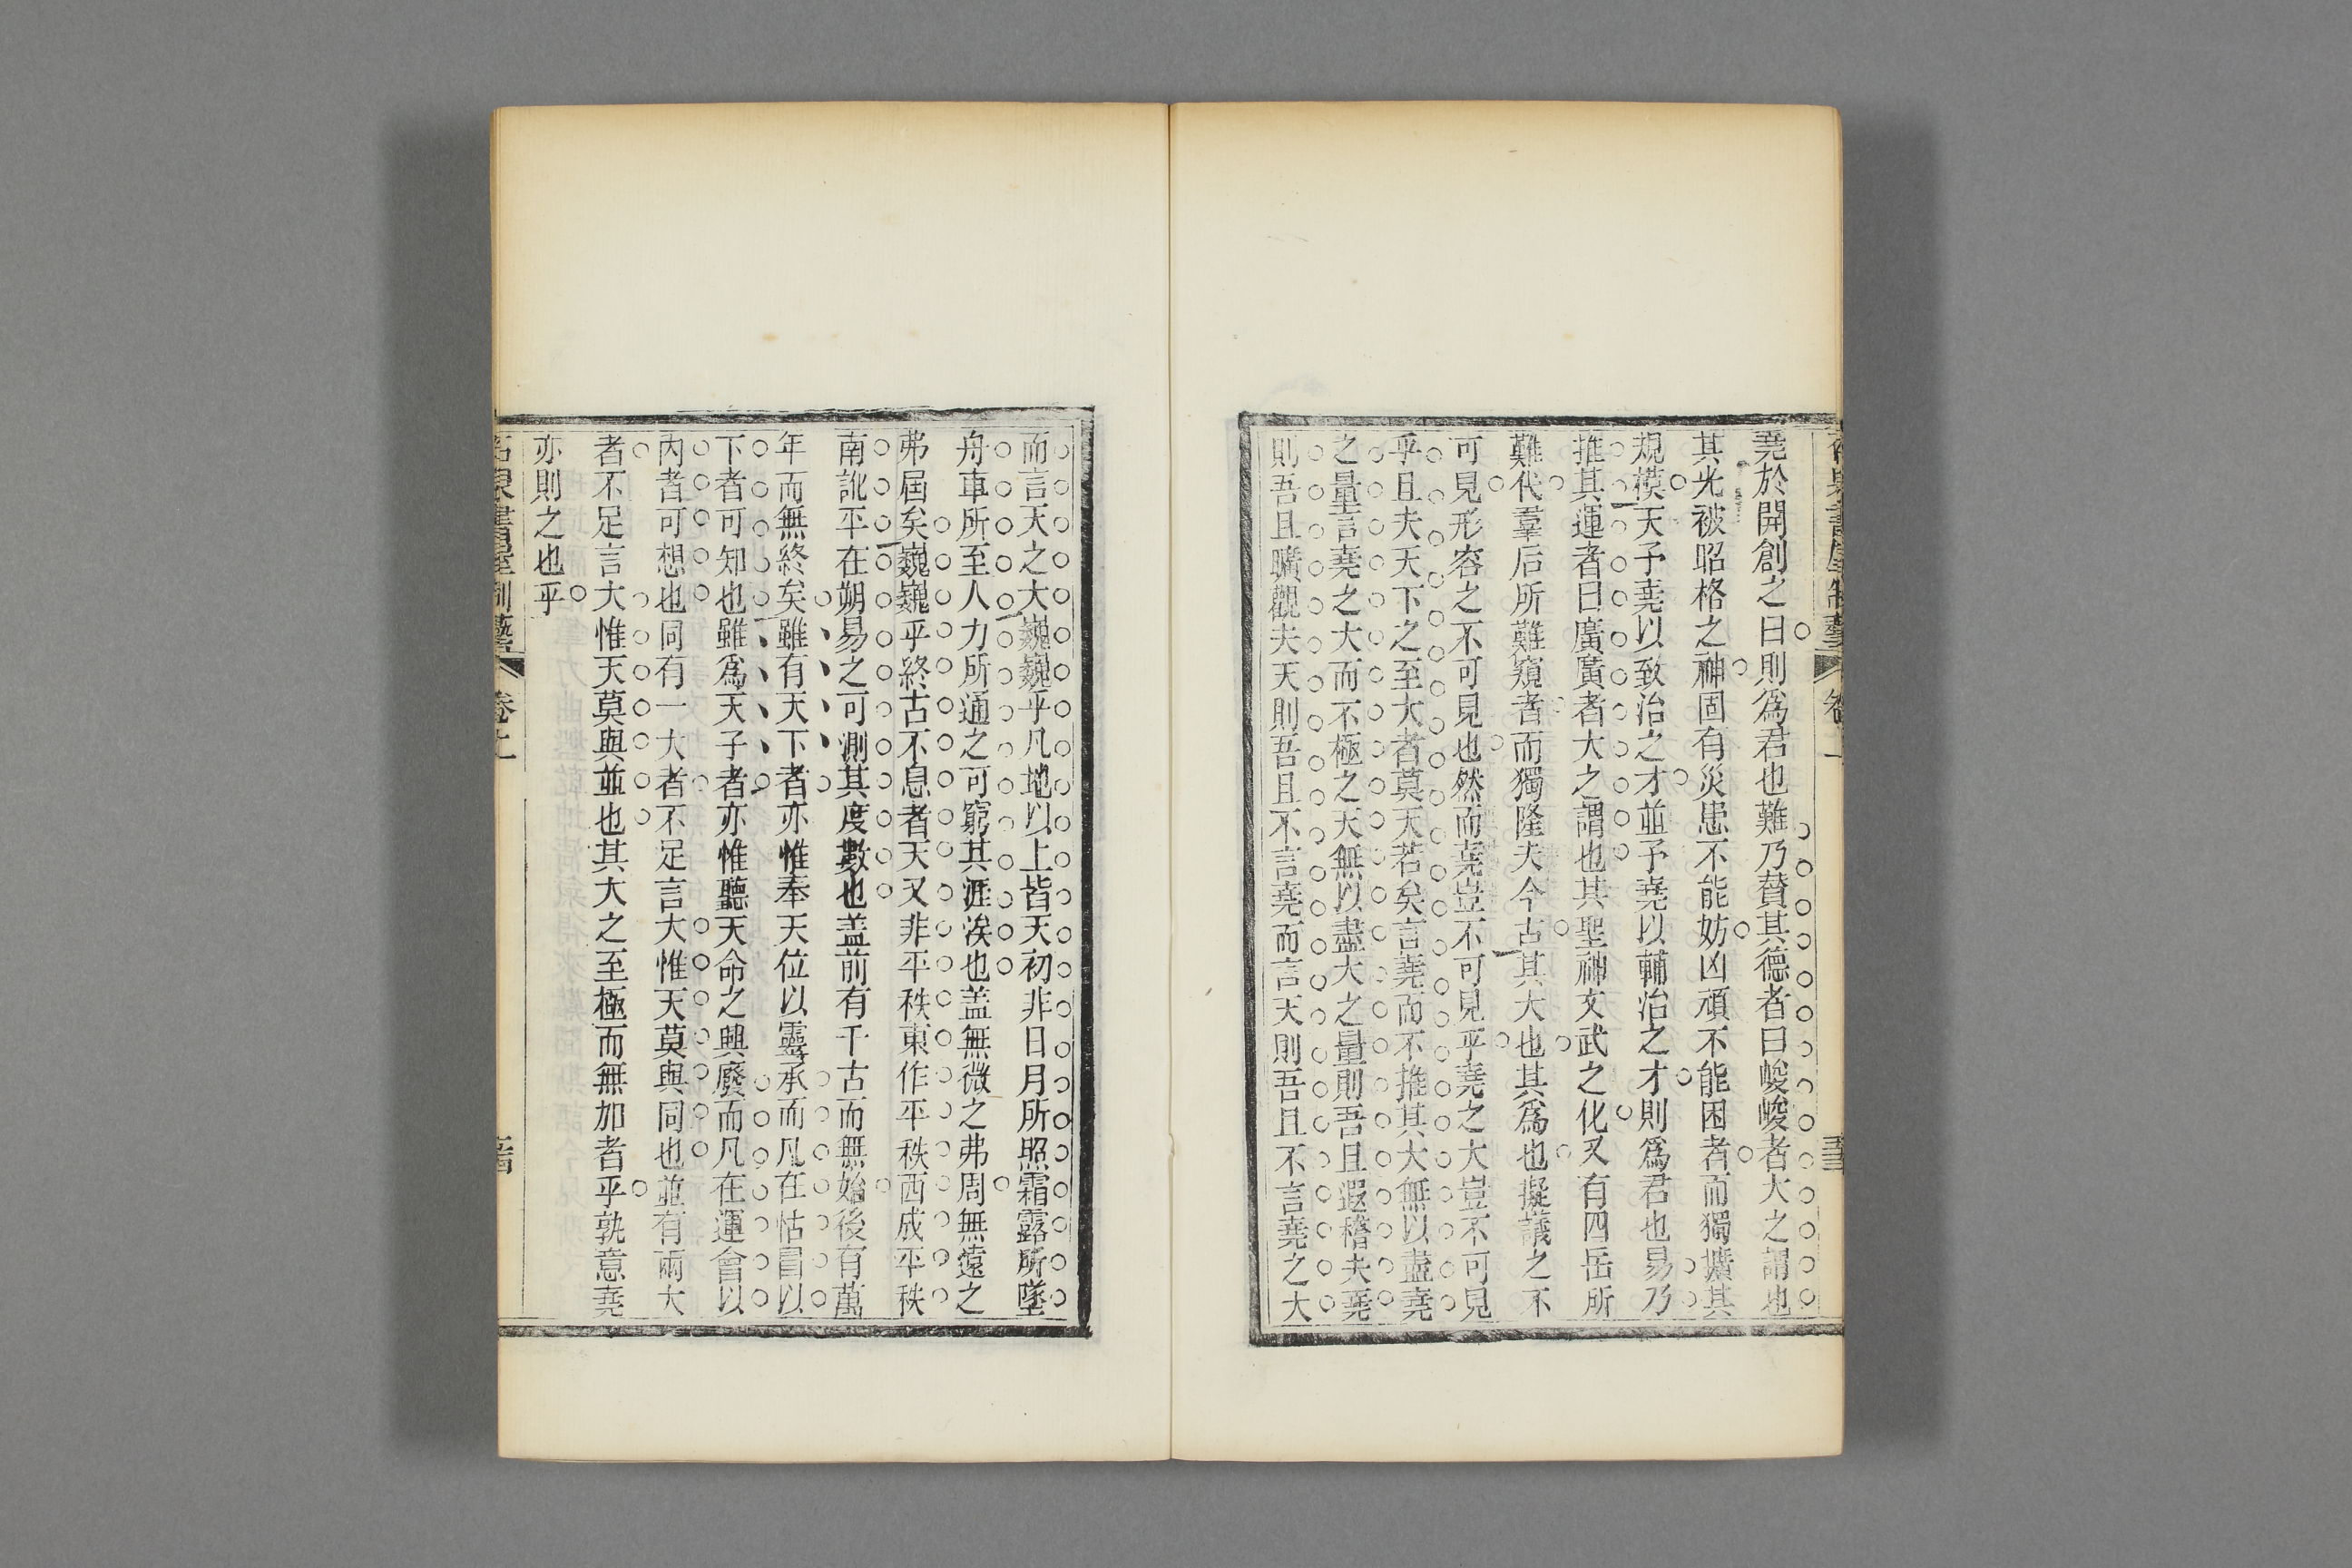 堯於開創之日則爲君也難乃賛其德者曰峻峻者大之謂也
其光被昭格之神固有災患不能妨凶頑不能困者而獨擴其
規模天予堯以致治之才並予堯以輔治之才則爲君也易乃
推其運者曰廣廣者大之謂也其聖神文武之化又有四岳所
難代羣后所難窺者而獨隆夫今古其大也其爲也擬議之不
可見形容之不可見也然而堯豈不可見乎堯之大豈不可見
乎且夫天下之至大者莫天若矣言堯而不推其大無以盡堯
之量言堯之大而不極之天無以盡大之量則吾且遐稽夫堯
則吾且曠觀夫天則吾且不言堯而言天則吾且不言堯之大
而言天之大巍巍乎凡地以上皆天初非日月所照霜露所墜
舟車所至人力所通之可窮其涯涘也盖無微之弗周無遠之
弗屆矣巍巍乎終古不息者天又非平秩東作平秩西成平秩
南訛平在朔易之可測其度數也盖前有千古而無始後有萬
年而無終矣雖有天下者亦惟奉天位以靈承而凡在怙冒以
下者可知也雖爲天子者亦惟聽天命之興廢而凡在運會以
內者可想也同有一大者不足言大惟天莫與同也並有兩大
者不足言大惟天莫與並也其大之至極而無加者乎孰意堯
亦則之也乎